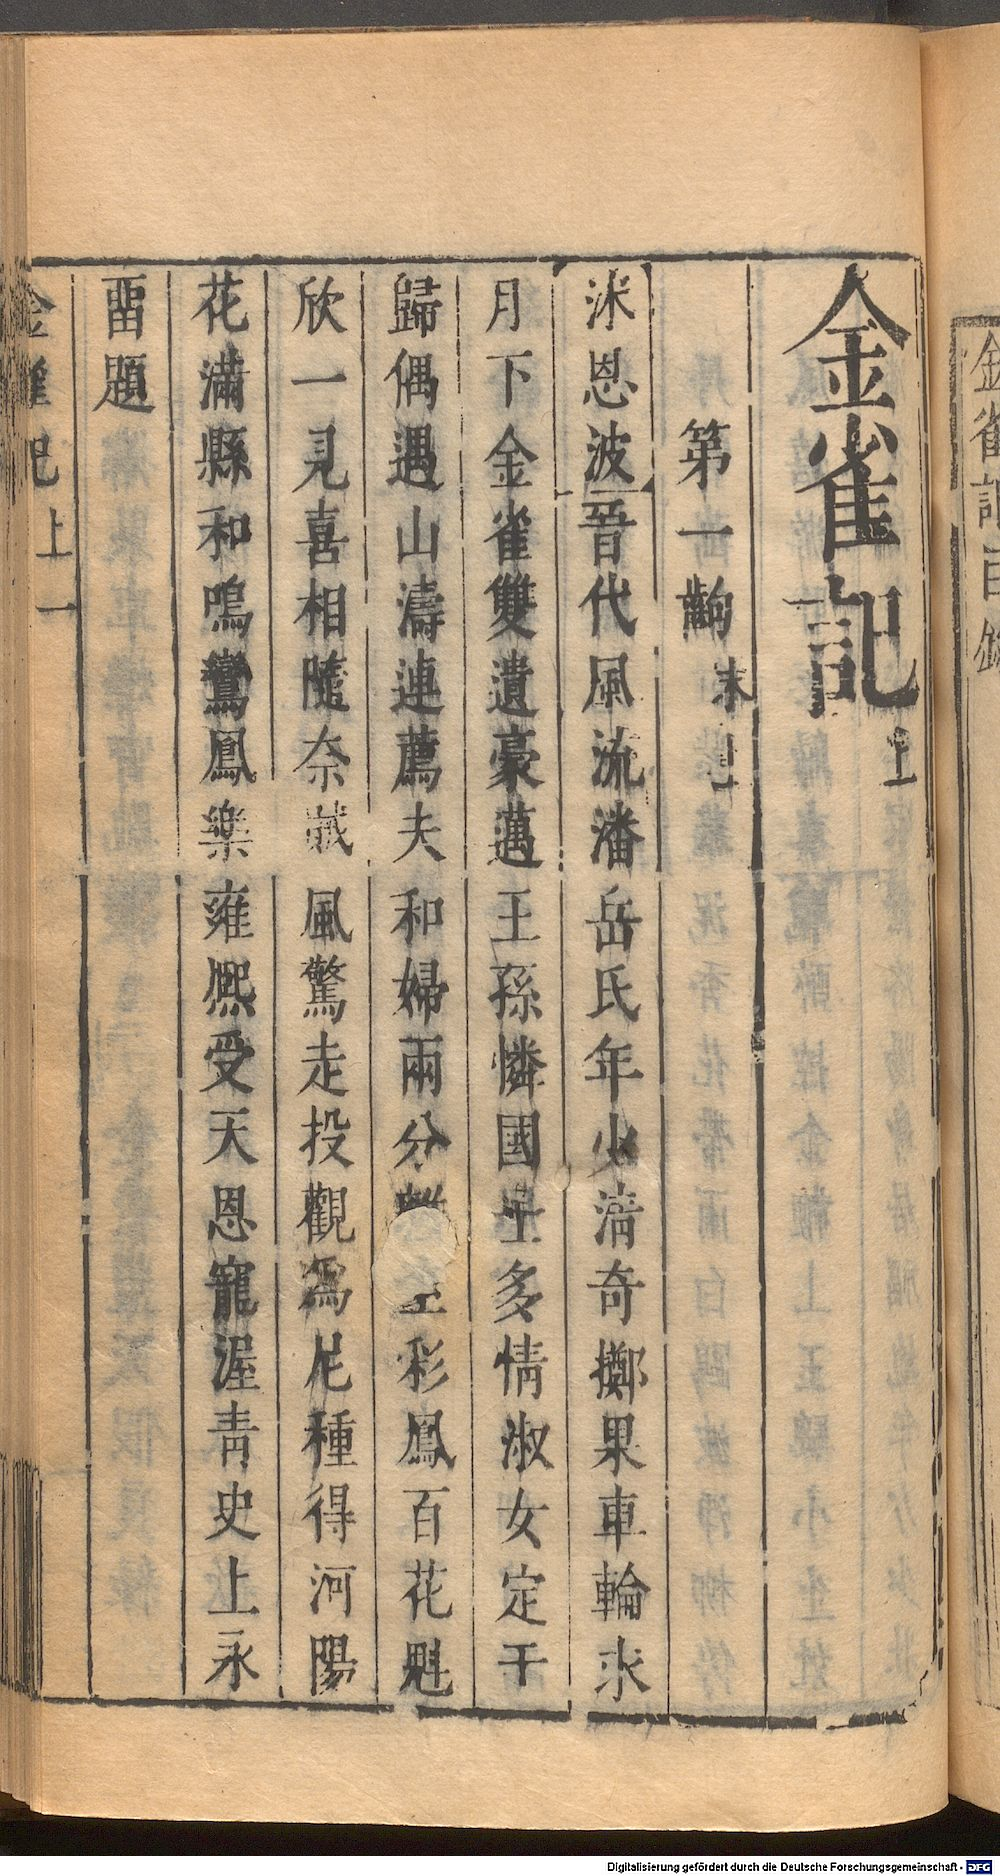 金雀記上
第一齣 末上
沐恩波晉代風流潘岳氏年少清奇擲果車輪氷
月下金雀雙遺豪邁王孫憐國士多情淑女定于
歸偶遇山濤連薦夫和婦兩分彩鳳百花魁
欣一見喜相隨奈賊風驚走投觀爲尼種得河陽
花滿縣和鳴鸞鳳樂雍熈受天恩寵渥靑史上永
畱題
金雀記 上 一
金雀記目錄
Digitalisierung gefördert durch die Deutsche Forschungsgemeinschaft - DFG